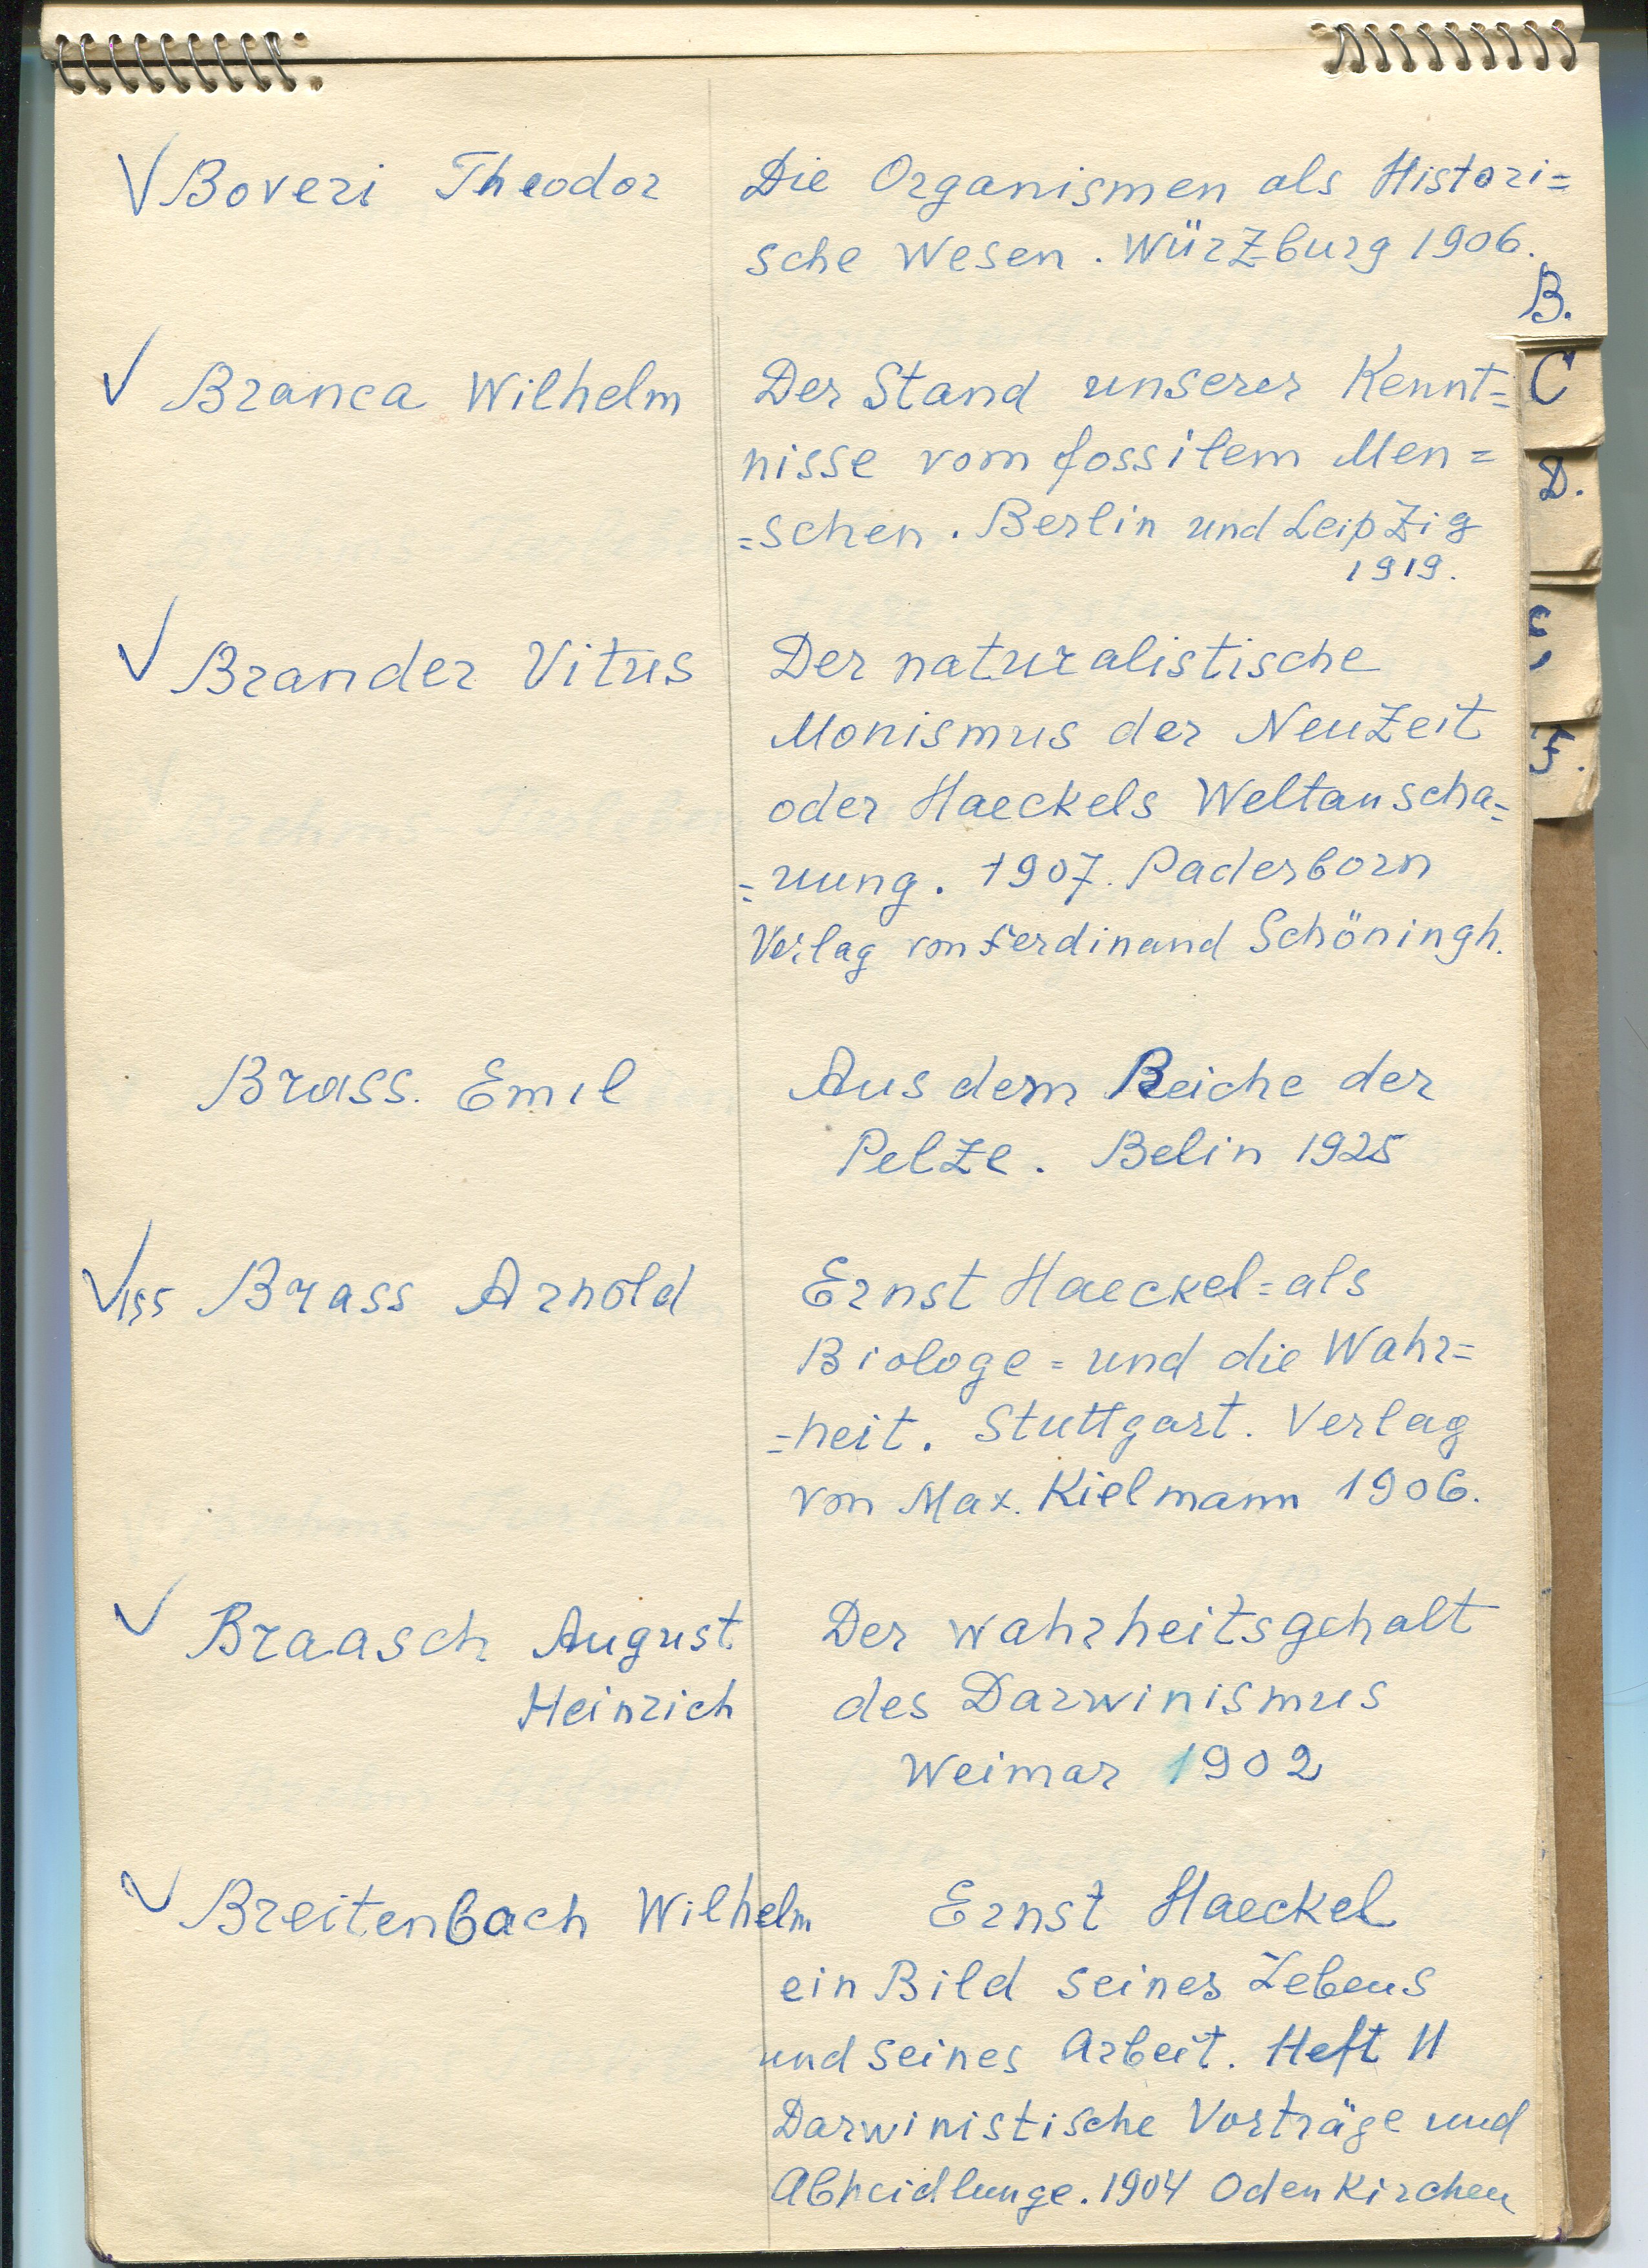 √ Boveri Theodor
Die Organismen als Histori=
sche Wesen. Würzburg 1906.
B.
√ Branca Wilhelm
Der Stand unserer Kennt=
nisse vom fossilem Men=
=schen. Berlin und Leipzig
1919.
C
D.
√ Brander Vitus
Der naturalistische
Monismus der Neuzeit
oder Haeckels Weltanscha=
=uung. 1907. Paderborn
Verlag von Ferdinand Schöningh.
F.
Brass. Emil
Aus dem Reiche der
Pelze. Belin 1925
√ 155 Brass Arnold
Ernst Haeckel=als
Biologe = und die Wahr=
=heit. Stuttgart. Verlag
von Max. Kielmann 1906.
√ Braasch August
Heinrich
Der wahrheitsgehalt
des Darwinismus
Weimar 1902
√ Breitenbach Wilhelm
Ernst Haeckel
ein Bild seines Lebens
und seines Arbeit. Heft 11
Darwinistische Vorträge und
Abheidlunge. 1904 Odenkirchen